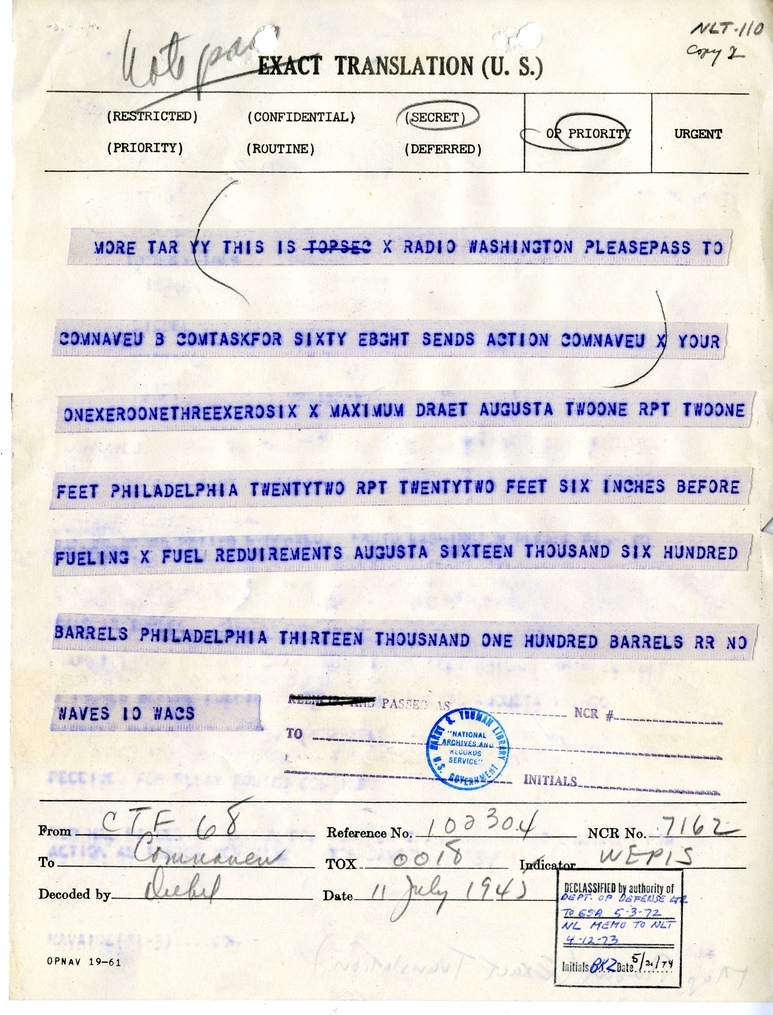 NLT-110
Copy 2
Note pass
EXACT TRANSLATION (U. S.)
(RESTRICTED) (CONFIDENTIAL) (SECRET) OP PRIORITY URGENT
(PRIORITY) (ROUTINE) (DEFERRED)
MORE TAR YY THIS IS TOPSEC X RADIO WASHINGTON PLEASEPASS TO
COMNAVEU B COMTASKFOR SIXTY EBGHT SENDS ACTION COMNAVEU X YOUR
ONEXEROONETHREEXEROSIX X MAXIMUM DRAET AUGUSTA TWOONE RPT TWOONE
FEET PHILADELPHIA TWENTYTWO RPT TWENTYTWO FEET SIX INCHES BEFORE
FUELING X FUEL REDUIREMENTS AUGUSTA SIXTEEN THOUSAND SIX HUNDRED
BARRELS PHILADELPHIA THIRTEEN THOUSNAND ONE HUNDRED BARRELS RR NO
WAVES IO WACS
AND PASSED AS NCR #
TO
INITIALS
HARRY S. TRUMAN LIBRARY
"NATIONAL
ARCHIVES AND
RECORDS
SERVICE"
U.S. GOVERNMENT
From CTF 68 Reference No. 102304 NCR No. 7162
To Comnaveu TOX 0018 Indicator WEPIS
Decoded by Date 11 July 1945
DECLASSIFIED by authority of
DEPT. OF DEFENSE LTR
TO GSA 5-3-72
NL MEMO TO NLT
4-12-73
Initials Date 5/21/74
OPNAV 19-61